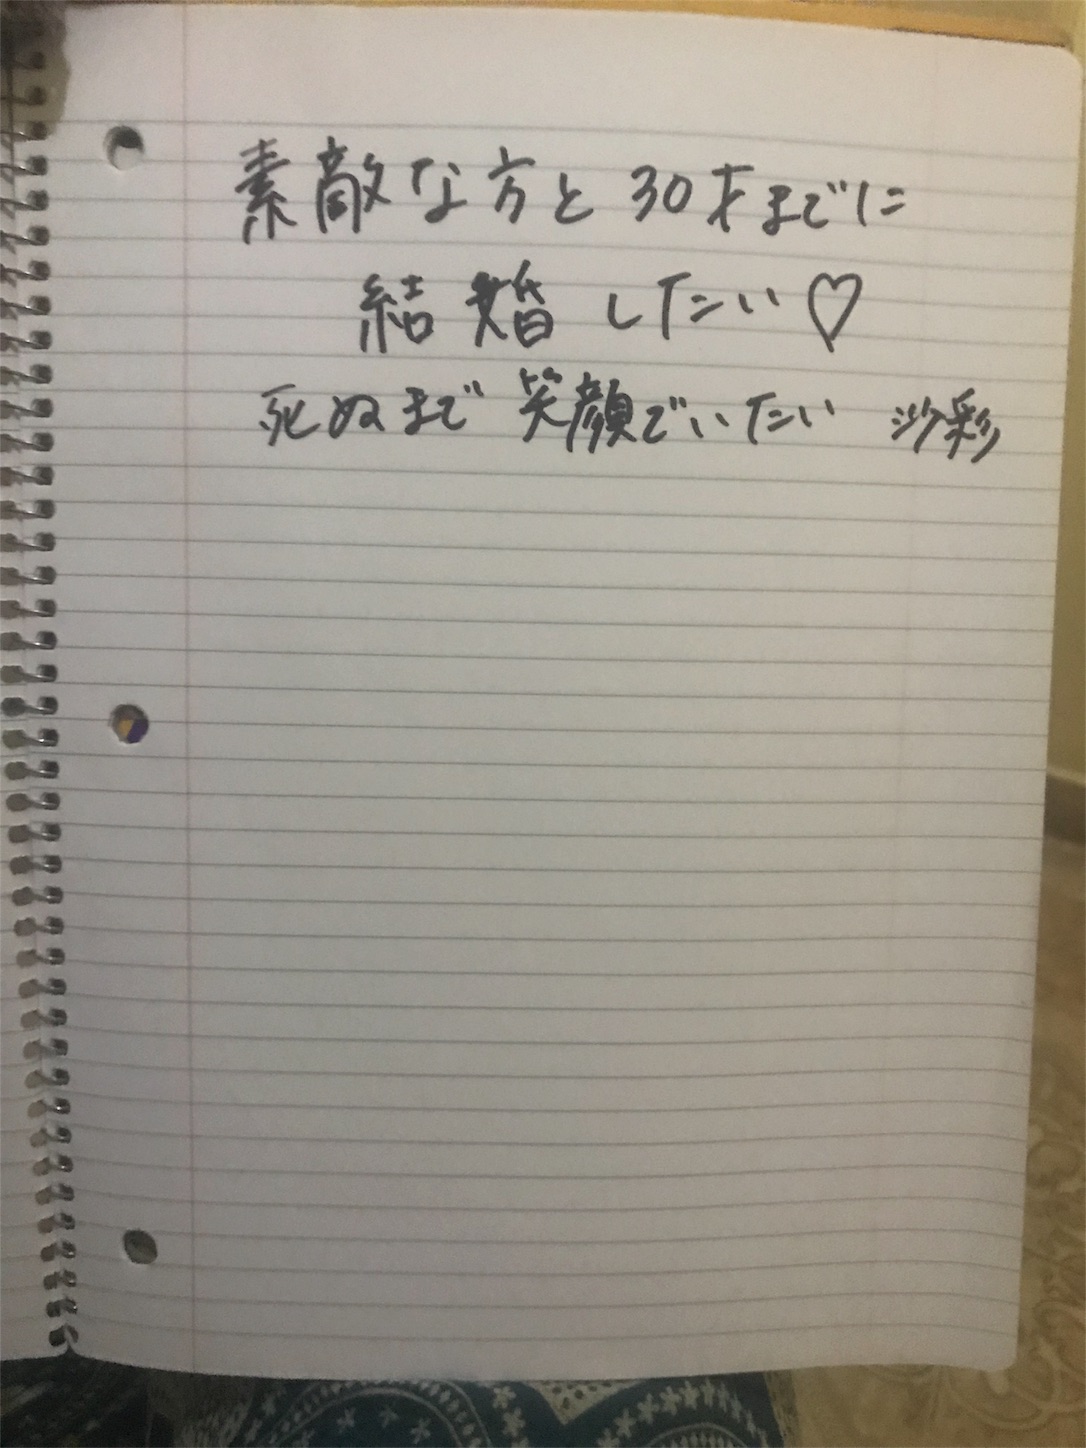 素敵な方と30才までに
結婚したい♡
死ぬまで笑顔でいたい 沙彩